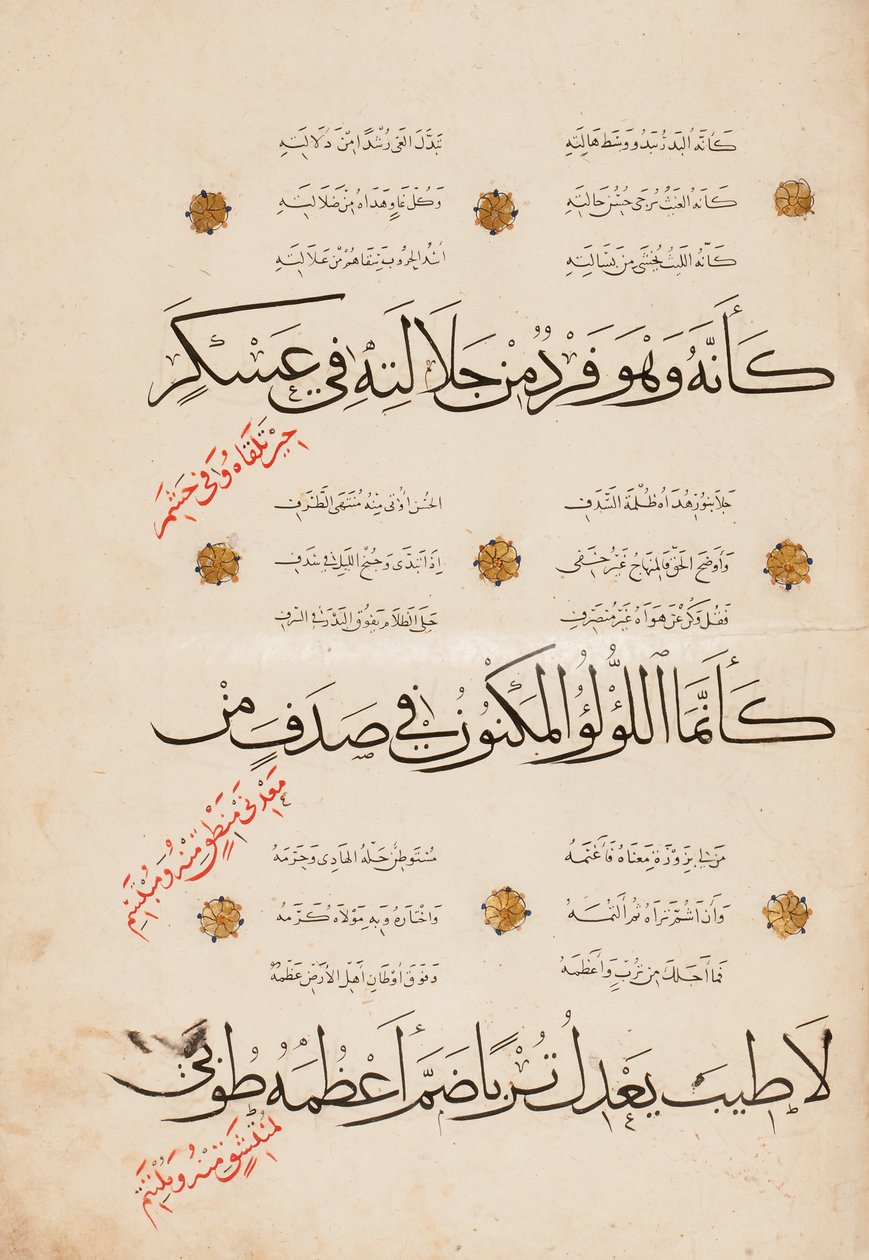 كَأَنَّهُ البَدْرُ يَبْدُو وَسْطَ هَالَتِهِ تَبَدَّلَ الغَيُّ رُشْدًا مِنْ دَلَالَتِهِ
كَأَنَّهُ الغَيْثُ يُرْجَى حُسْنُ حَالَتِهِ وَكُلُّ غَاوٍ هَدَاهُ مِنْ ضَلَالَتِهِ
كَأَنَّهُ اللَّيْثُ يُخْشَى مِنْ بَسَالَتِهِ أُسْدُ الحُرُوبِ مِنْ
كَأَنَّهُ وَهْوَ فَرْدٌ مِنْ جَلَالَتِهِ فِي عَسْكَرٍ
حِينَ تَلْقَاهُ وَفِي حَشَمِ
جَلَا بِنُورِ هُدَاهُ ظُلْمَةَ السَّدَفِ الحُسْنُ أُوتِي مِنْهُ مُنْتَهَى الطَّرَفِ
وَأَوْضَحَ الحَقَّ فَالمِنْهَاجُ غَيْرُ خَفِي إِذَا تَبَدَّى وَجُنْحُ اللَّيْلِ فِي سَدَفِ
فَقُلْ وَكُنْ عَنْ هَوَاهُ غَيْرَ مُنْصَرِفِ جَلَى الظَّلَامَ يَفُوقُ البَدْرَ فِي الشَّرَفِ
كَأَنَّمَا اللُّؤْلُؤُ المَكْنُونُ فِي صَدَفٍ مِنْ
مَعْدِنَيْ مَنْطِقٍ مِنْهُ وَمُبْتَسَمِ
مَنْ لِي بِزَوْرَةِ مَغْنَاهُ فَأَغْنَمَهُ مُسْتَوْطِنٌ حَلَّهُ الهَادِي وَحَرَّمَهُ
وَأَنْ أَشُمَّ ثَرَاهُ ثُمَّ أَلْثِمَهُ وَاخْتَارَهُ وَبِهِ مَوْلَاهُ كَرَّمَهُ
فَمَا أَجَلَّكَ مِنْ تُرْبٍ وَأَعْظَمَهُ وَفَوْقَ أَوْطَانِ أَهْلِ الأَرْضِ عَظَّمَهُ
لَا طِيبَ يَعْدِلُ تُرْبًا ضَمَّ أَعْظُمَهُ طُوبَى
لِمُنْتَشِقٍ مِنْهُ وَمُلْتَثِمِ